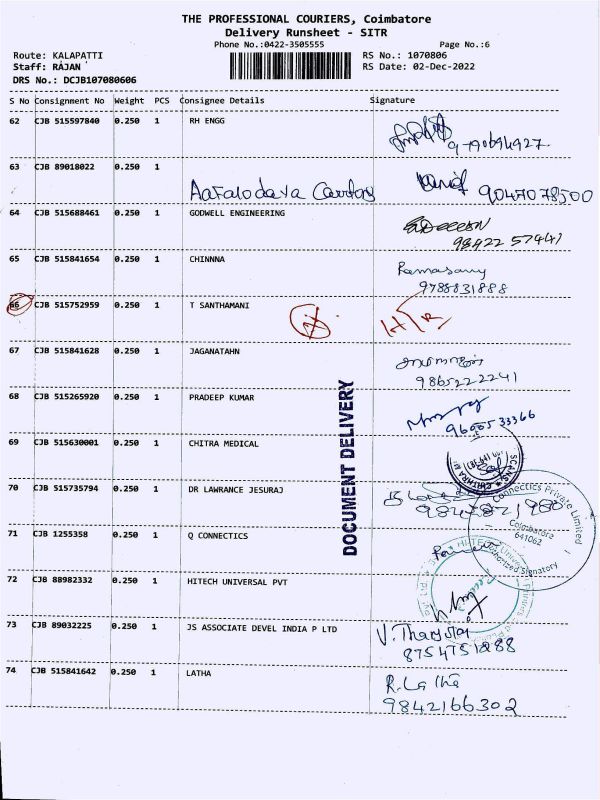 THE PROFESSIONAL COURIERS, Coimbatore
Delivery Runsheet - SITR
Phone No.:0422-3505555 Page No.:6
Route: KALAPATTI RS No.: 1070806
Staff: RAJAN RS Date: 02-Dec-2022
DRS No.: DCJB107080606
S No Consignment No Weight PCS Consignee Details Signature
62 CJB 515597840 0.250 1 RH ENGG
63 CJB 89018022 0.250 1
9047078500
64 CJB 515688461 0.250 1 GODWELL ENGINEERING
98422 57441
65 CJB 515841654 0.250 1 CHINNNA
Ramasamy
9788831888
66 CJB 515752959 0.250 1 T SANTHAMANI H/R
67 CJB 515841628 0.250 1 JAGANATAHN
9865222241
68 CJB 515265920 0.250 1 PRADEEP KUMAR
9600533366
69 CJB 515630001 0.250 1 CHITRA MEDICAL
DOCUMENT DELIVERY
70 CJB 515735794 0.250 1 DR LAWRANCE JESURAJ
71 CJB 1255358 0.250 1 Q CONNECTICS
Connectics Private Limited
Coimbatore
641062
Authorized Signatory
72 CJB 88982332 0.250 1 HITECH UNIVERSAL PVT
73 CJB 89032225 0.250 1 JS ASSOCIATE DEVEL INDIA P LTD
8754751288
74 CJB 515841642 0.250 1 LATHA
R. Latha
9842166302